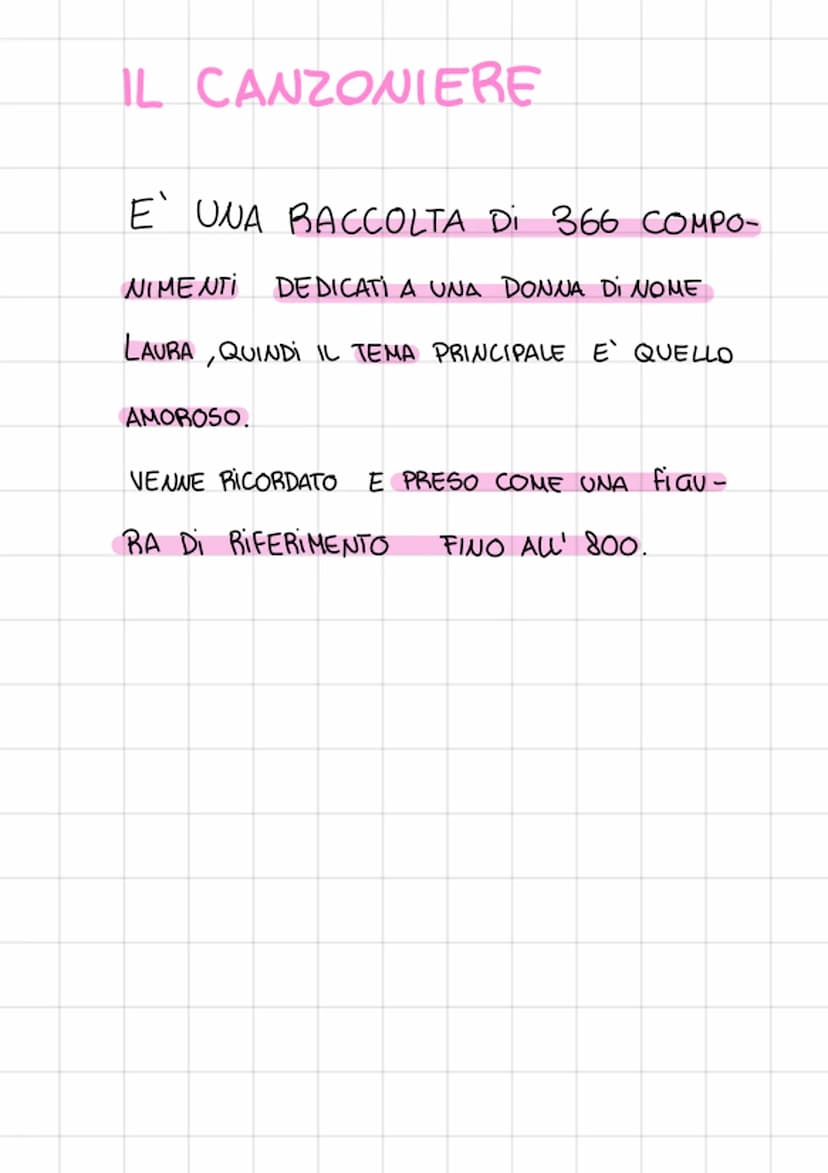 IL CANZONIERE
E` UNA RACCOLTA Di 366 COMPO-
NIMENTi DEDICATi A UNA DONNA Di NOME
LAURA, QUINDi IL TEMA PRINCIPALE E` QUELLO
AMOROSO.
VENNE RiCORDATO E PRESO COME UNA fiGU-
RA Di RiFERiMENTO FINO ALL' 800.